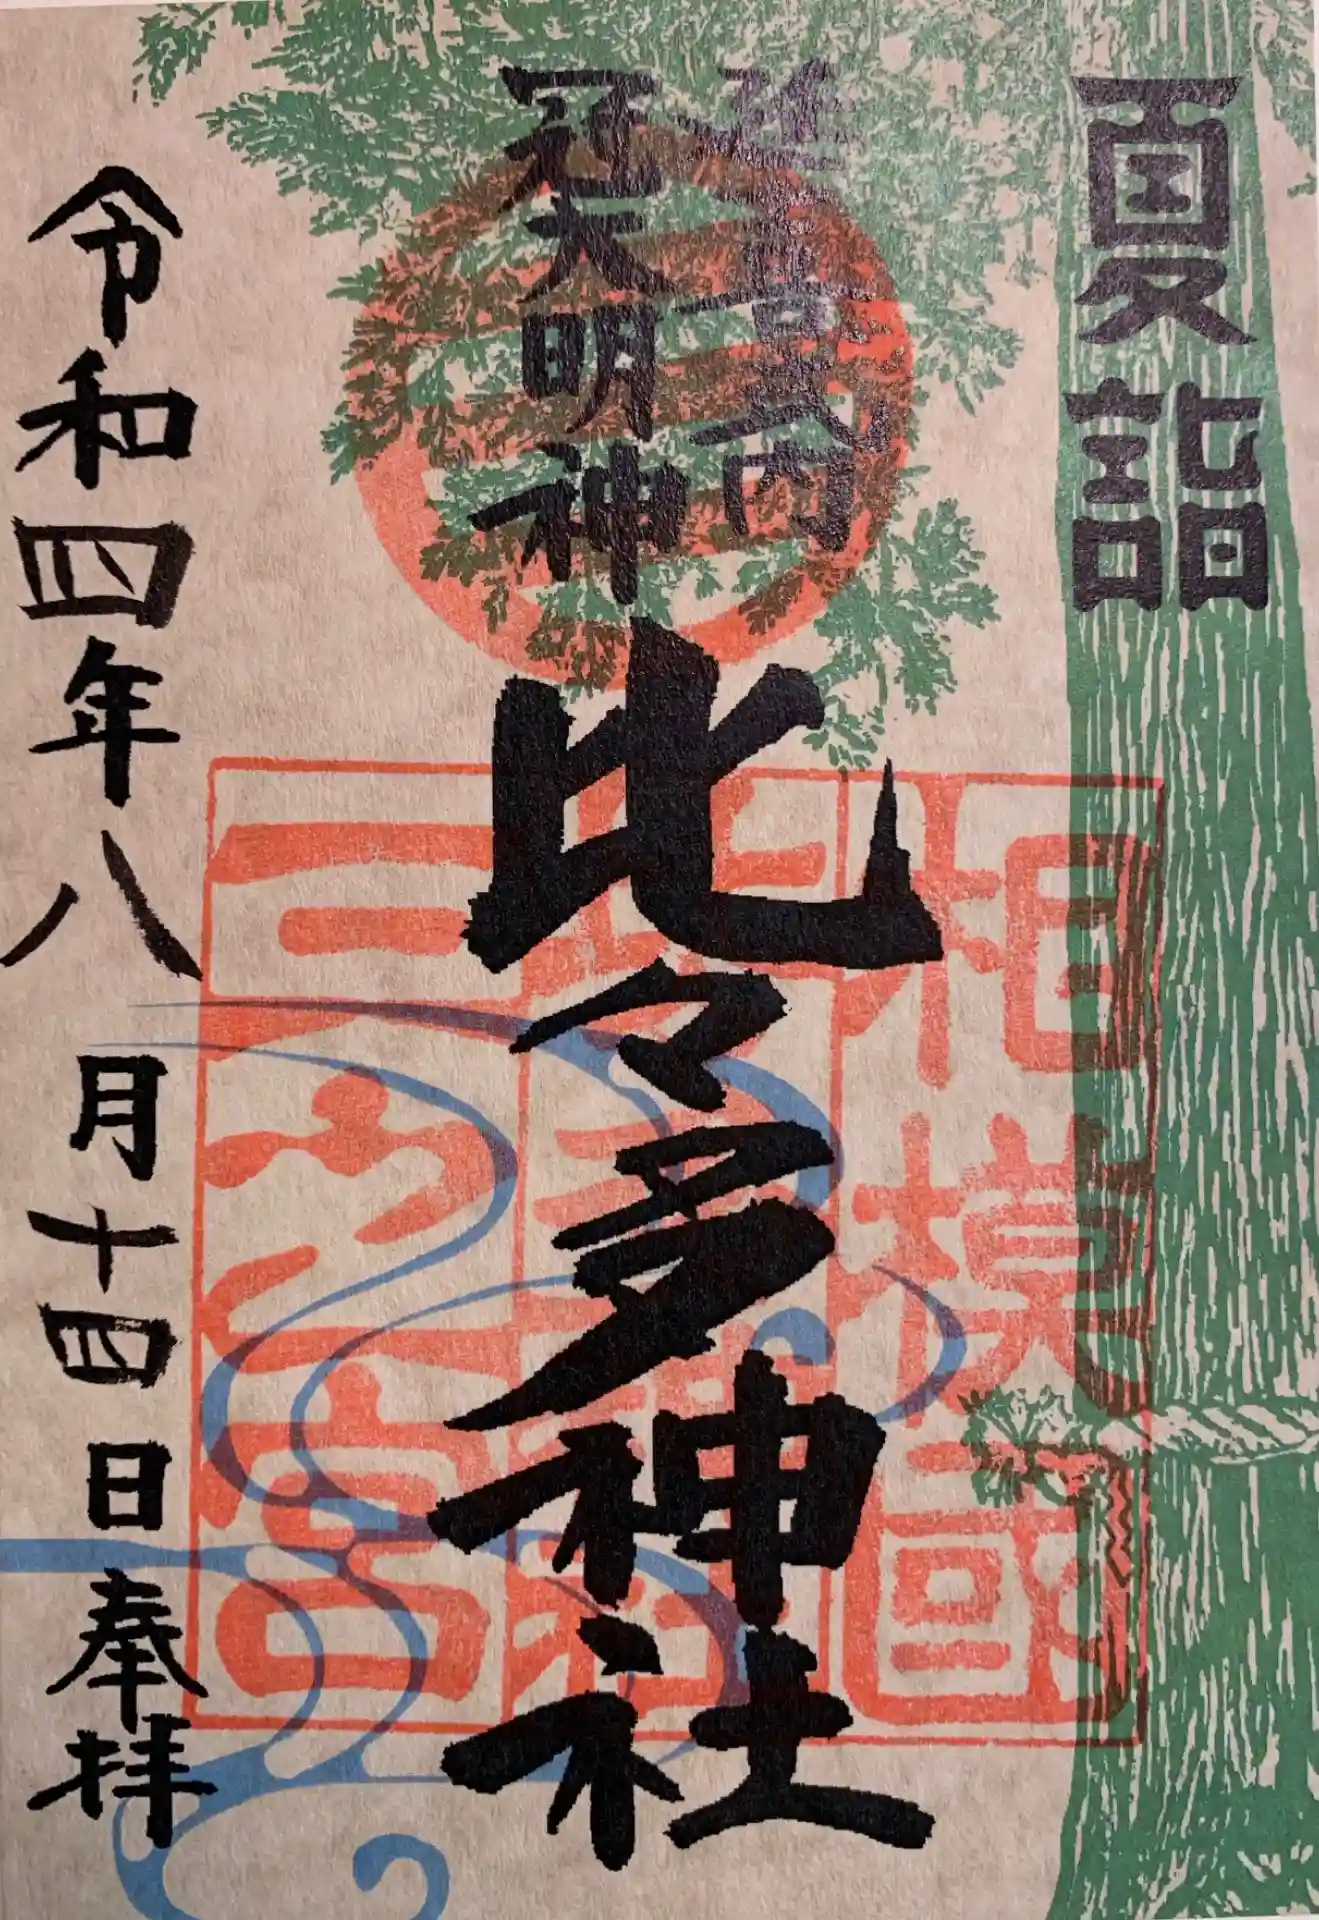 夏詣
延喜式内
冠大明神
比々多神社
令和四年八月十四日奉拝
相模國
三之宮